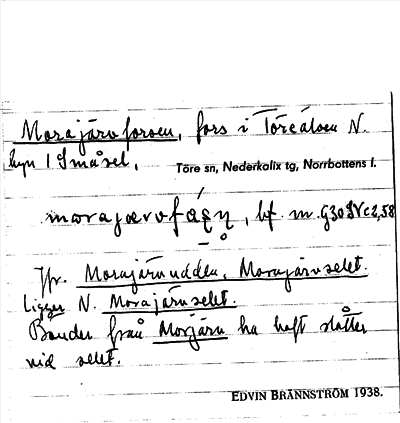 Morajärvforsen, fors i Töreälven N.
byn 1 Småsel,
Töre sn, Nederkalix tg, Norrbottens l.
bf. m. G30SVc2,58
Jfr. Morajärvudden, Morajärvselet.
Ligger N. Morajärvselet.
Bönder från Morjärv ha haft slåtter
vid selet.
EDVIN BRÄNNSTRÖM 1938.